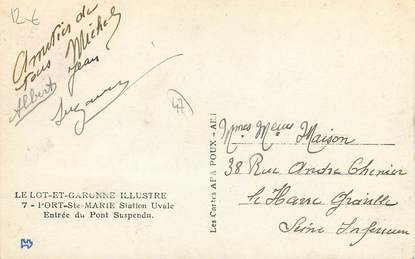 12€
Amitiés de
tous Michel
Albert Jean
Suzanne
47
LE LOT-ET-GARONNE ILLUSTRE
7 - PORT-Ste-MARIE Station Uvale
Entrée du Pont Suspendu.
Les Cartes APA POUX - ALBI
Mmes Meurs Maison
38 Rue Andre Chenier
le Havre Graville
Seine Inferieure